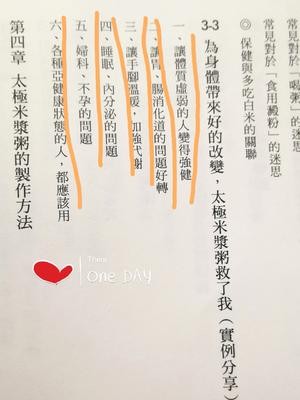 常見對於「喝粥」的迷思
常見對於「食用澱粉」的迷思
◎ 保健與多吃白米的關聯
3-3 為身體帶來好的改變，太極米漿粥救了我（實例分享）
一、讓體質虛弱的人變得強健
二、讓胃、腸消化道的問題好轉
三、讓手腳溫暖、加強代謝
四、睡眠、內分泌的問題
五、婦科、不孕的問題
六、各種亞健康狀態的人，都應該用
第四章 太極米漿粥的製作方法
There
One DAY